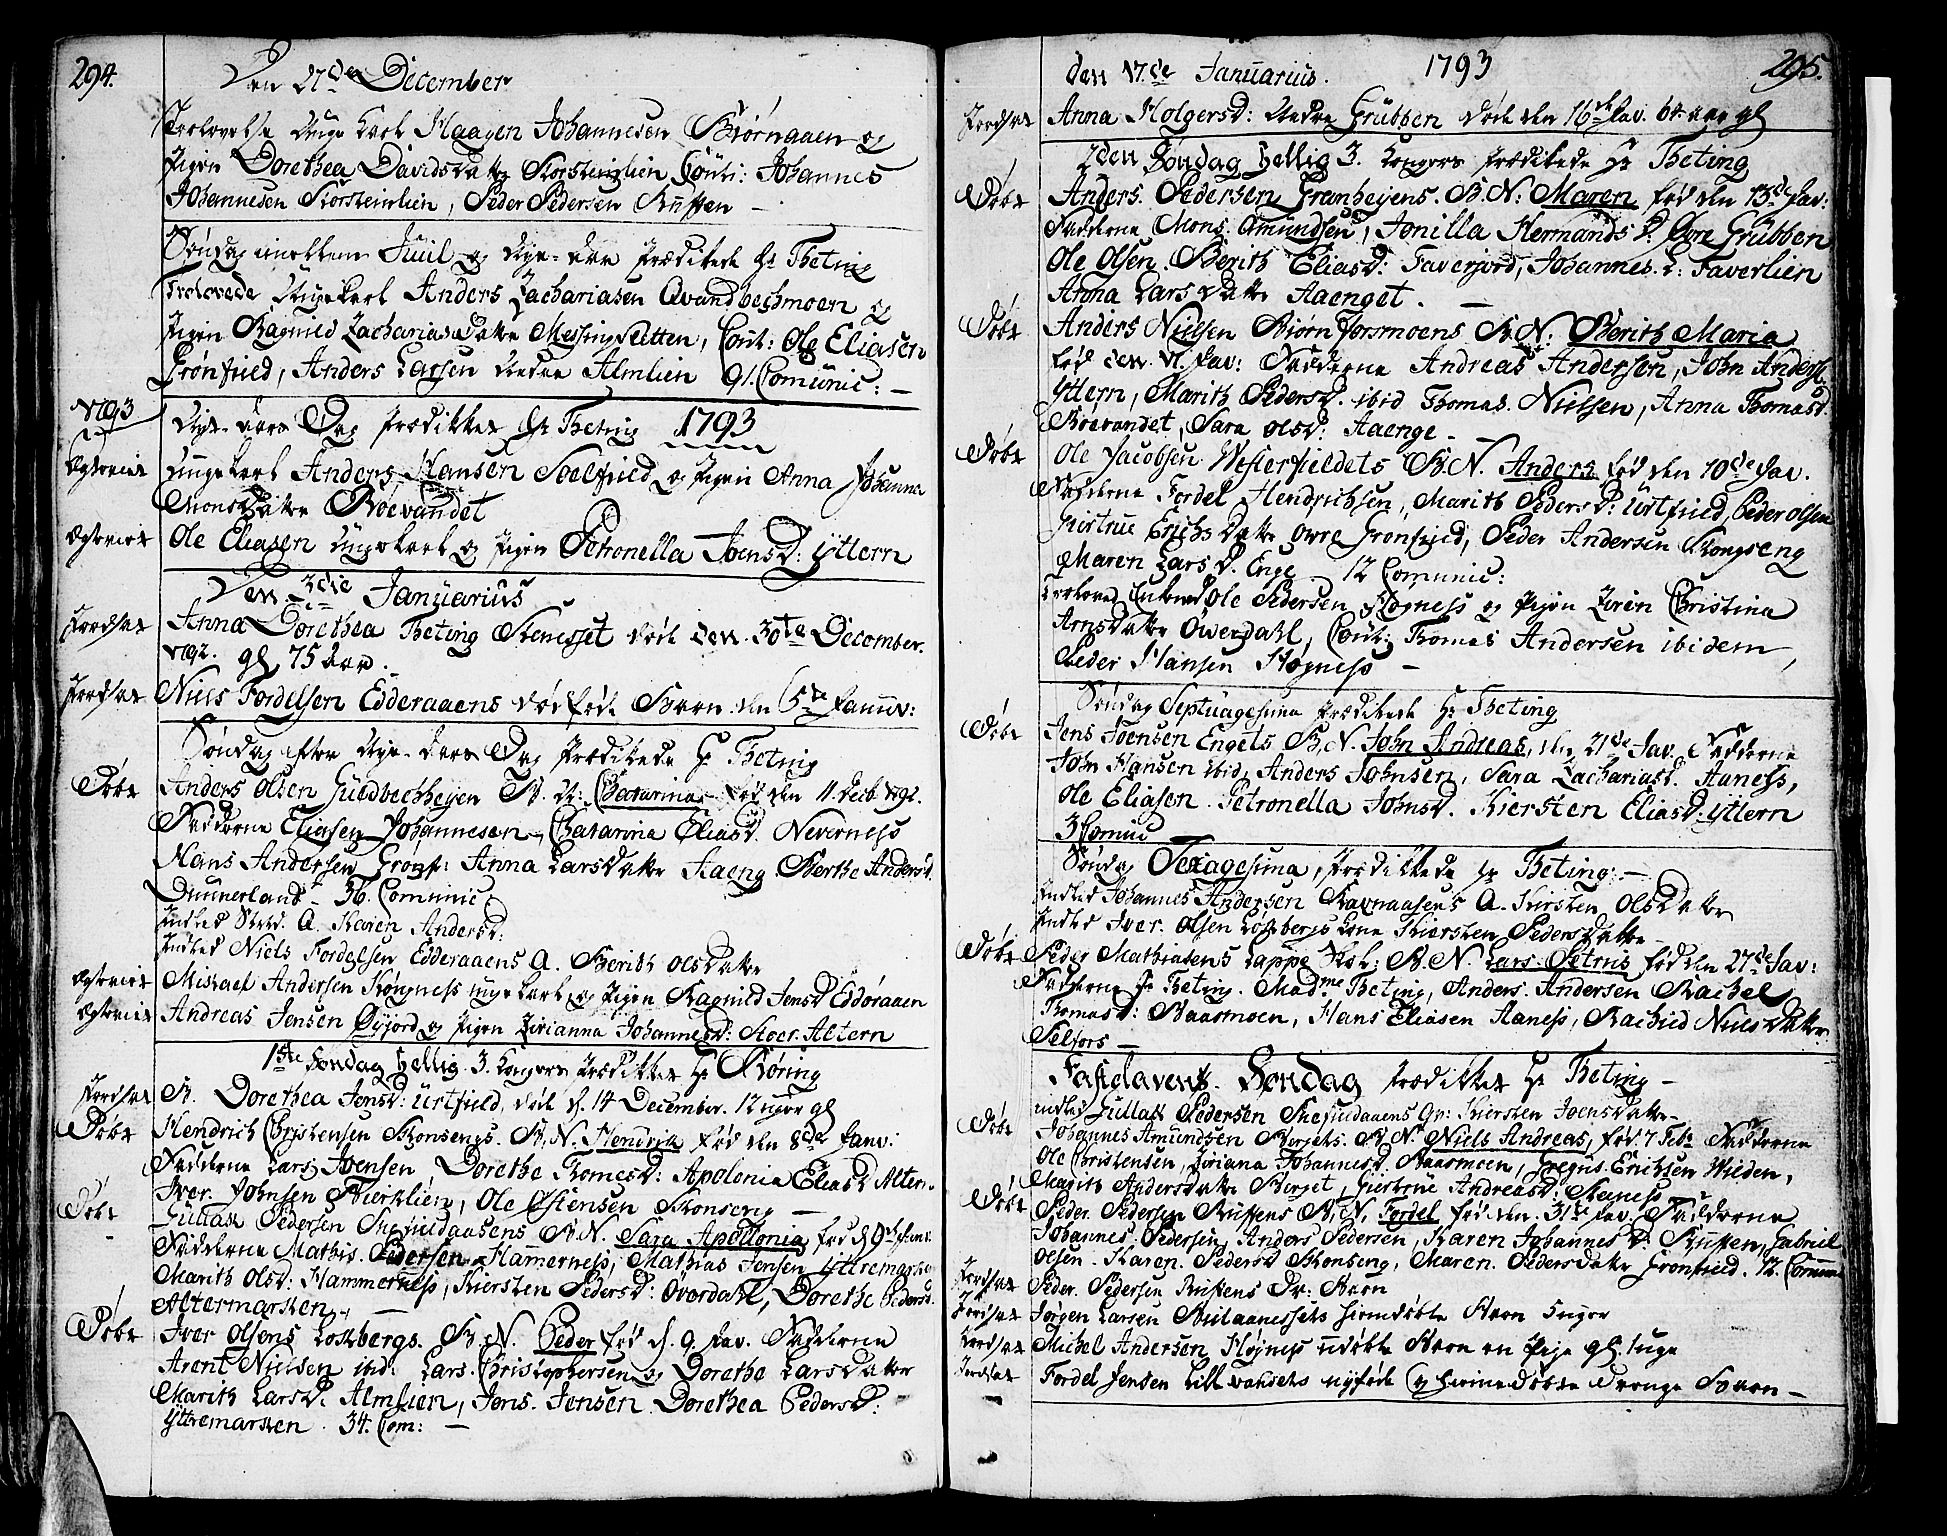 294.
Den 27de December
Trolovelse Unge Karl Haagen Johannesen Biørnaaen og
Pigen Dorethea Davidsdatter Storsteinlien Cauti: Johannes
Johannesen Storsteinlien, Peder Pedersen Ruffen —
Søndag imellem Juul og Nye-aar Prædikede Hr Theting
Trolovede Ungekarl Anders Zachariasen Qvandbechmoen og
Pigen Ragnild Zachariasdatter Messingsletten, Caut: Ole Eliasen
Grønfield, Anders Larsen Nedre Almlien 91. Comunic: —
1793
Nye-aars Dag Prædikket Hr Theting 1793
Ægteviet Ungekarl Anders Hansen Soelfield og Pigen Anna Johanna
Monsdatter Røevandet
Ægteviet Ole Eliasen Ungekarl og Pigen Petronella Joensd: Yttern
Den 3die Januarius
Jordsat Anna Dorethea Theting Stenesset døde den 30te December
1792. gl 75 aar.
Jordsat Niels Fordelsen Edderaaens dødføde Barn den 5te Januar:
Søndag efter Nye-aars Dag Prædikede Hr Theting
Døbt Anders Olsen Guldbechheyen B. N: Catarina fød den 11. Decb 1792.
Fadderne Eliasen Johannesen, Catarina Eliasd. Neverness
Hans Andersen Gronf: Anna Larsdatter Aaeng Berthe Andersd.
Dunnerland — 36. Comunic:
Indled Sted. A. Karen Andersd:
Indled Niels Fordelsen Edderaaens A. Berith Olsdatter
Ægteviet Michael Andersen Høgness unge Karl og Pigen Ragnild Jensd Edderaaen
Ægteviet Andreas Jensen Øyjord og Pigen Zirianna Johannesd: Stoer Altern
1ste Søndag Hellig 3. Konger Prædikket Hr Røring
Jordsat B. Dorethea Jensd: Urtfield, døde d. 14 December. 12 uger gl
Døbt Hendrich Christensen Skonsengs. B. N. Hendrik fød den 8de Janv:
Fadderne Lars Joensen Dorethe Thomesd: Apolonia Eliasd Altern.
Iver Johnsen Bierklien, Ole Østensen Skonseng —
Døbt Gullak Pedersen Snefieldaasens B. N. Sara Apellonia fød d 9de Janv:
Fadderne Mathis. Pedersen Hammerness, Mathias Jensen Yttremarken
Marith Olsd: Hammerness, Kiersten Pedersd: Øverdahl, Dorethe Pedersd.
Altermarken —
Døbt Iver Olsens Lossbergs. B. N. Peder fød d. 9. Jav. Fadderne
Arent Nielsen ibid: Lars. Christophersen og Dorethe Larsdatter
Marith Larsd. Almlien, Jens. Jensen Dorethea Pedersd:
Yttremarken. 34. Com: —
den 17de Januarius. 1793 295.
Jordsat Anna Holgersd: Nedre Grubben døde den 16de Jav. 64 aar gl
2den Søndag Hellig 3. Konger Prædikede Hr Theting
Døbt Anders Pedersen Granheyens. B. N: Maren fød den 13de Jav:
Fadderne Mons Amundsen, Jonilla Hermands D: Øvre Grubben
Ole Olsen. Berith Eliasd: Faverjord, Johannes L: Faverlien
Anna Larsdatter Aaenget. —
Døbt Anders Nielsen Biørn Forsmoens B. N: Berith Maria
fød den 11. Jav: Fadderne Andreas Andersen, John Anders:
Yttern, Marith Pedersd. ibid Thomas. Nielsen, Anna Thomasd
Røevandet, Sara Olsd: Aaenge —
Døbt Ole Jacobsen Westerfieldets B. N. Anders fød den 10de Jav.
Fadderne Fordel Hendrichsen, Marith Pedersd: Urtfield, Peder Olsen
Giertrue Erichsdatter Øvre Grønfield, Peder Andersen Skongseng
Maren Larsd. Enge — 12 Comunic:
Trolovet Enkemd Ole Pedersen Høgness og Pigen Ziren Christina
Arnsdatter Øwerdahl, Caut: Thomas Andersen ibidem,
Peder Hansen Høgness —
Søndag Septuagesima Prædikede Hr Theting
Døbt Jens Joensen Engets B. N. John Andreas, den 21de Jav. Fadderne
John Hansen ibid, Anders Johnsen, Sara Zachariasd. Aaness,
Ole Eliasen. Petronella Johnsd. Kiersten Eliasd: Yttern
3 Comuc
Søndag Sexagesima, Prædikkede Hr Theting —
Indled Johannes Andersen Ravnaasens A. Kirsten Olsdatter
Indled Iver. Olsen Lossbergs Kone Kiersten Pedersdatter
Døbt Peder Mathiasens Lappe B. N. Lars: Petrus fød den 27de Jav:
Fadderne Hr Theting. Madme Theting, Anders. Andersen Rachel
Thomasd: Baasmoen, Hans Eliasen Aaness, Rachild Nielsdatter
Selfors —
Fastelavens. Søndag Prædikket Hr Theting —
indled Gullak Pedersen Snefieldaaens Qv: Kiersten Joensdatter —
Døbt Johannes Amundsen Berjets. B. N. Niels Andreas, fød. 7 Feb: Fadderne
Ole Christensen, Ziriana Johannesd. Baasmoen, Gregus. Erichsen Wieden,
Marith Andersdatter Berget, Giertrue Andreasd: Steness
Døbt Peder. Pedersen Ruffens B. N. Fordel fød den. 31te Jav. Fadderne
Johannes. Pedersen, Anders Pedersen, Karen Johannes D: Ruffen, Gabriel
Olsen. Karen. Pedersd Skonseng, Maren. Pedersdatter Grønfield. 12. Comun
Jordsat Peder. Pedersen Ruffens Dr: Barn
Jordsat Jørgen Larsen hiemdøbte Barn 5 uger
Jordsat Michel Andersen Høgness udøbte Barn en Pige gl. 1 uge
Jordsat Fordel Jensen nyføde og hiemedøbte drenge Barn —